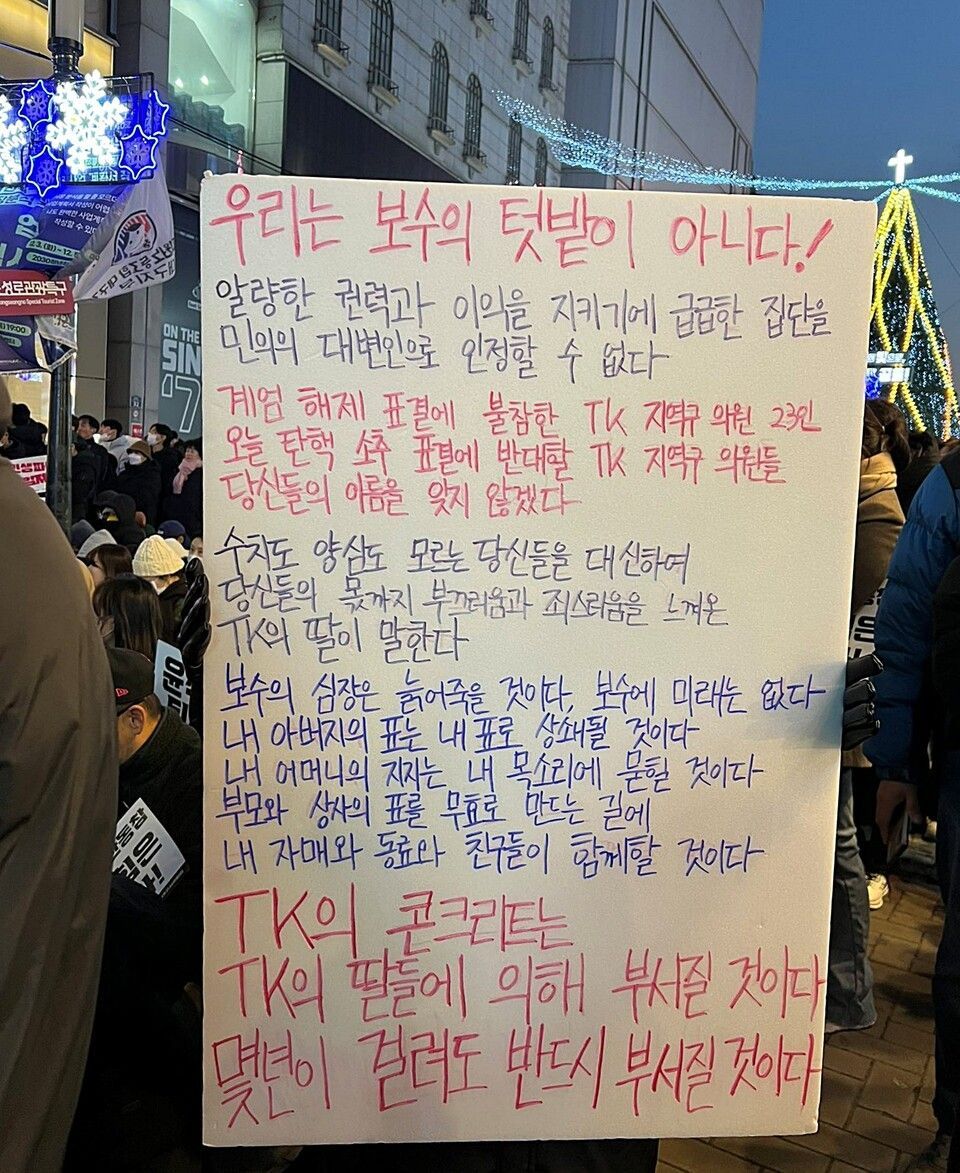 우리는 보수의 텃밭이 아니다!
알량한 권력과 이익을 지키기에 급급한 집단을
민의의 대변인으로 인정할 수 없다
계엄 해제 표결에 불참한 TK 지역구 의원 23인
오늘 탄핵 소추 표결에 반대할 TK 지역구 의원들
당신들의 이름을 잊지 않겠다
수치도 양심도 모르는 당신들을 대신하여
당신들의 몫까지 부끄러움과 죄스러움을 느껴온
TK의 딸이 말한다
보수의 심장은 늙어죽을 것이다, 보수에 미래는 없다
내 아버지의 표는 내 표로 상쇄될 것이다
내 어머니의 지지는 내 목소리에 묻힐 것이다
부모와 상사의 표를 무효로 만드는 길에
내 자매와 동료와 친구들이 함께할 것이다
TK의 콘크리트는
TK의 딸들에 의해 부서질 것이다
몇년이 걸려도 반드시 부서질 것이다
성로관광특구
Special Tourist Zone
19:00
ON THE
SIN
'7